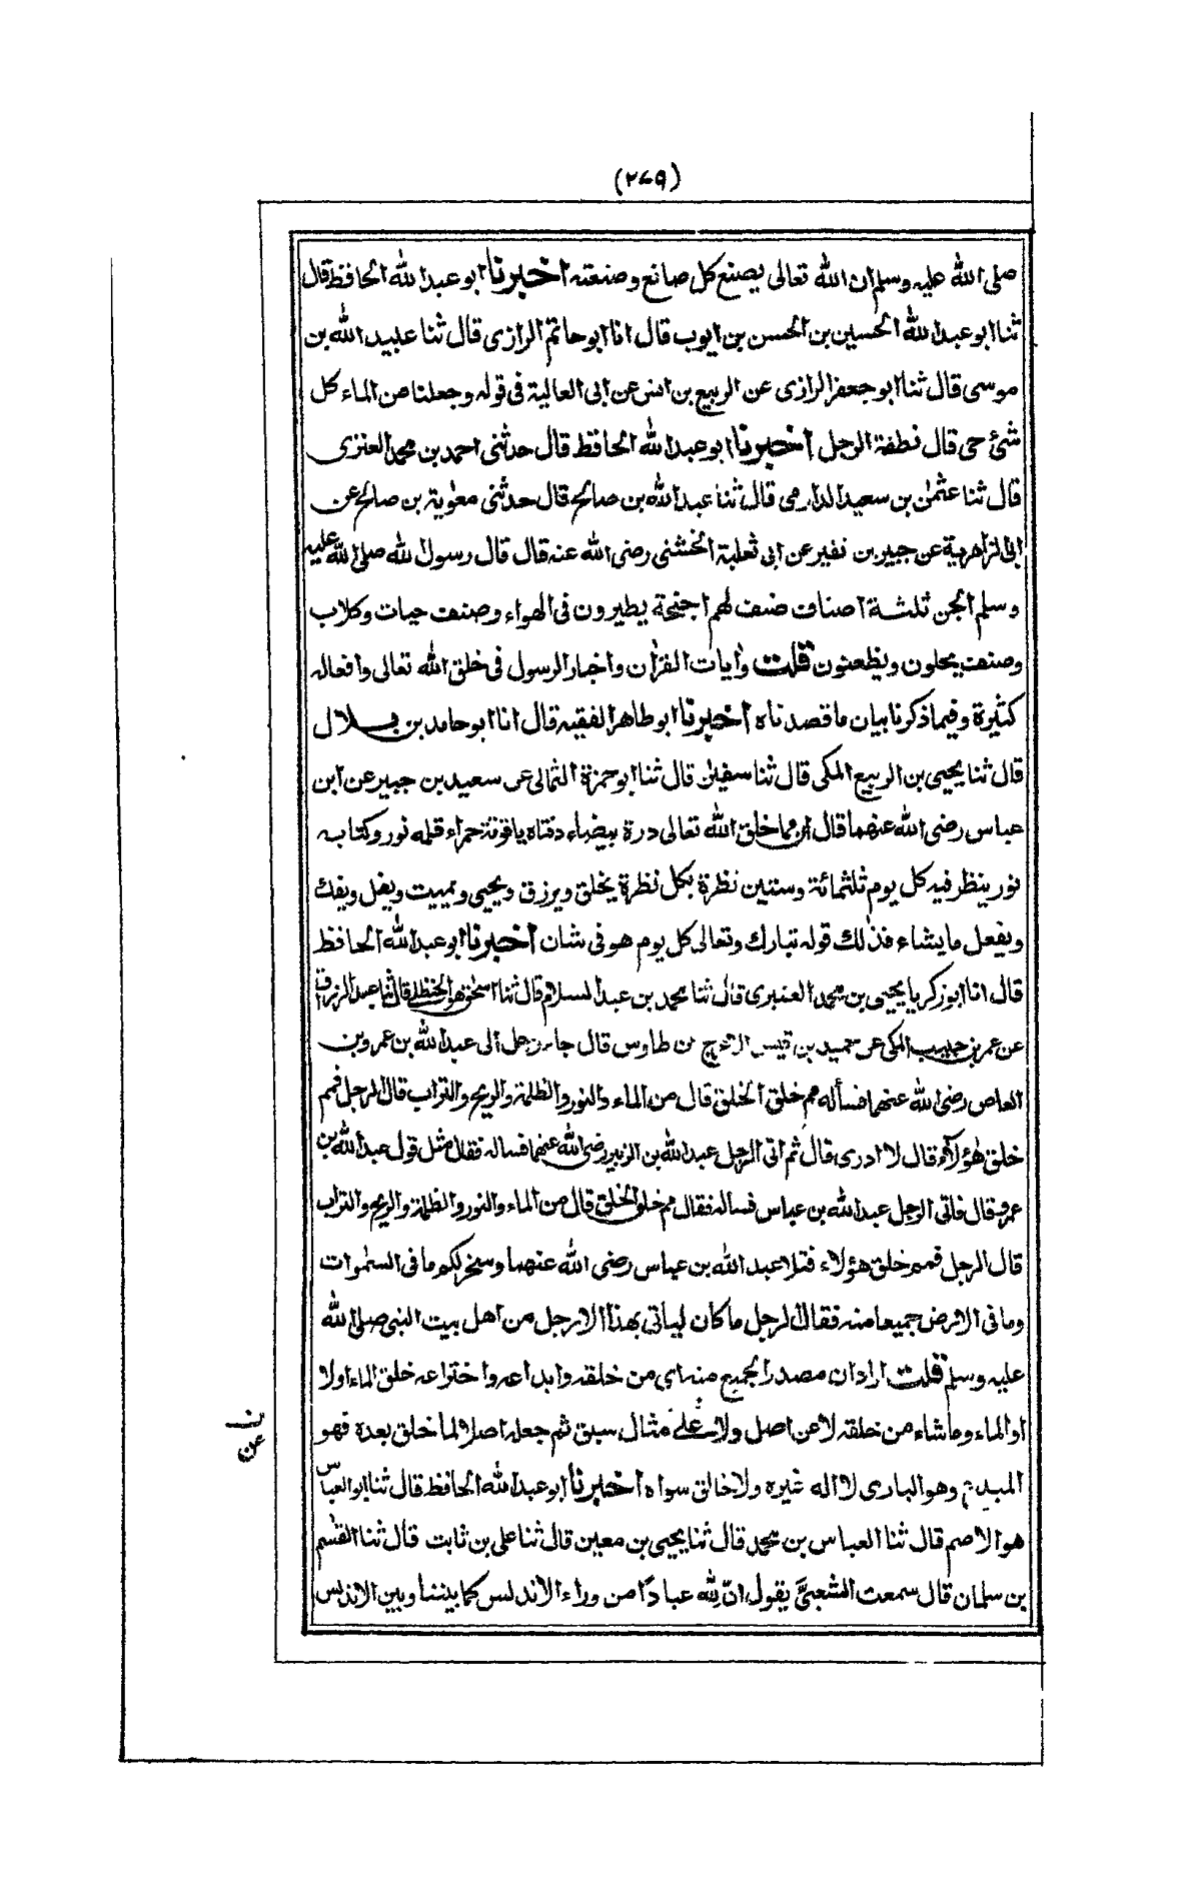 (٢٧٩)
صلى الله عليه وسلم ان الله تعالى يصنع كل صانع وصنعته اخبرنا ابو عبد الله الحافظ قال
ثنا ابو عبد الله الحسين بن الحسن بن ايوب قال انا ابو حاتم الرازى قال ثنا عبيد الله بن
موسى قال ثنا ابو جعفر الرازى عن الربيع بن انس عن ابى العالية فى قوله وجعلنا من الماء كل
شئ حى قال نطفة الرجل اخبرنا ابو عبد الله الحافظ قال حدثنى احمد بن محمد العنزى
قال ثنا عثمٰن بن سعيد الدارمى قال ثنا عبد الله بن صالح قال حدثنى معٰوية بن صالح عن
ابى الزاهرية عن جبير بن نفير عن ابى ثعلبة الخشنى رضى الله عنه قال قال رسول الله صلى الله عليه
وسلم الجن ثلثة اصناف صنف لهم اجنحة يطيرون فى الهواء وصنف حيات وكلاب
وصنف يحلون ويظعنون قلت واٰيات القراٰن واخبار الرسول فى خلق الله تعالى وافعاله
كثيرة وفيما ذكرنا بيان ما قصدناه اخبرنا ابو طاهر الفقيه قال انا ابو حامد بن بلال
قال ثنا يحيى بن الربيع المكى قال ثنا سفيٰن قال ثنا ابو حمزة الثمالى عن سعيد بن جبير عن ابن
عباس رضى الله عنهما قال ان مما خلق الله تعالى درة بيضاء دفتاه ياقوتة حمراء قلمه نور وكتابه
نور ينظر فيه كل يوم ثلثمائة وستين نظرة بكل نظرة يخلق ويرزق ويحيى ويميت ويغل ويفك
ويفعل ما يشاء فذلك قوله تبارك وتعالى كل يوم هو فى شان اخبرنا ابو عبد الله الحافظ
قال انا ابو زكريا يحيى بن محمد العنبرى قال ثنا محمد بن عبد السلام قال ثنا اسحٰق هو الحنظلى قال ثنا عبد الرزاق
عن عمر بن حبيب المكى عن حميد بن قيس الاعرج عن طاوس قال جاء رجل الى عبد الله بن عمرو بن
العاص رضى الله عنهما فسأله مم خلق الخلق قال من الماء والنور والظلمة والريح والتراب قال الرجل فمم
خلق هٰؤلاء قال لا ادرى قال ثم اتى الرجل عبد الله بن الزبير رضى الله عنهما فساله فقال مثل قول عبد الله بن
عمرو قال فاتى الرجل عبد الله بن عباس فساله فقال مم خلق الخلق قال من الماء والنور والظلمة والريح والتراب
قال الرجل فمم خلق هؤلاء فتلا عبد الله بن عباس رضى الله عنهما وسخر لكم ما فى السمٰوات
وما فى الارض جميعا منه فقال الرجل ما كان لياتى بهذا الا رجل من اهل بيت النبى صلى الله
عليه وسلم قلت اراد ان مصدر الجميع منه اى من خلقه وابداعه واختراعه خلق الماء اولا
او الماء وما شاء من خلقه لا عن اصل ولا على مثال سبق ثم جعله اصلا لما خلق بعده فهو
المبدع وهو البارى لا اله غيره ولا خالق سواه اخبرنا ابو عبد الله الحافظ قال ثنا ابو العباس
هو الاصم قال ثنا العباس بن محمد قال ثنا يحيى بن معين قال ثنا على بن ثابت قال ثنا القٰسم
بن سلمان قال سمعت الشعبى يقول ان لله عبادًا من وراء الاندلس كما بيننا وبين الاندلس
ن
عن